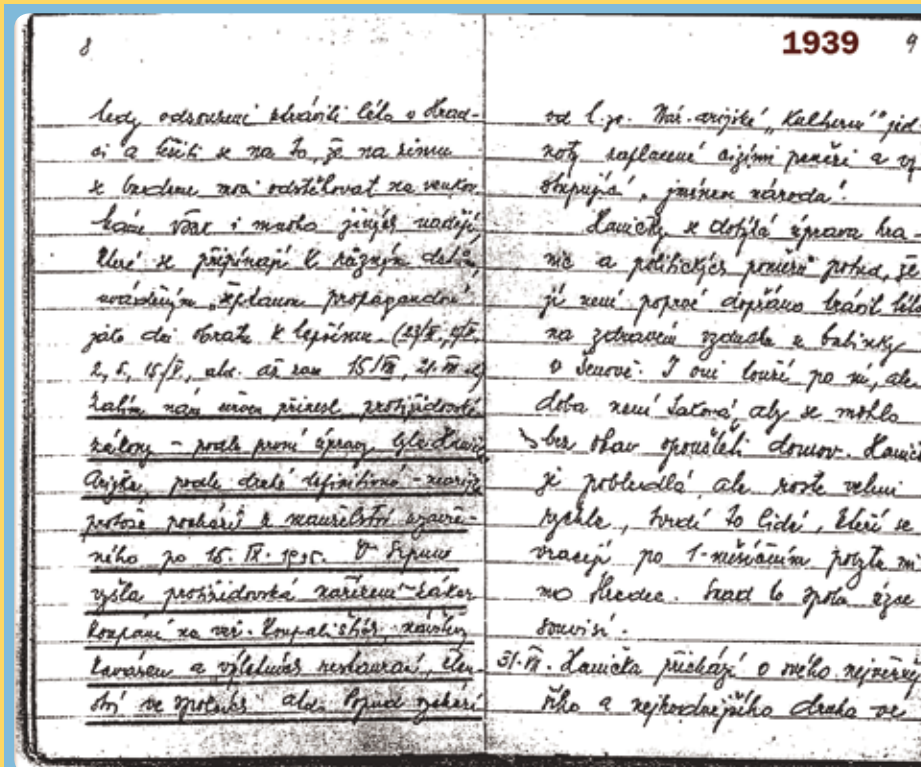 8
tedy odsouzeni ztráviti léto v Hrad-
ci a těšiti se na to, že na zimu
se budeme moci odstěhovat na venkov.
máme však i mnoho jiných nadějí,
které se připínají k různým datům,
uváděným propagandou
jako dni obratu k lepšímu. (23/
2, 5, 15/ atd. až 15/
Zatím nám červen přinesl protižidovské
zákony – podle první úpravy byla Hanička
podle druhé definitivně –
protože pochází z manželství uzavře-
ného po 15. IX. 1935. V srpnu
vyšla protižidovská nařízení – zákaz
koupání na veř. koupalištích, návštěvy
kaváren a výletních restaurací, člen-
ství ve spolcích atd. Popud
1939
9
od t. zv. Nár. arijské jed-
noty zaplacené cizími penězi a vy-
stupující „jménem národa“.
Haničky se dotýká úprava hra-
nic a politických poměrů potud, že
jí není popřáno trávit léto
na zdravém vzduchu u babinky
v Šenově. I oni touží po ní, ale
doba není taková, aby se mohlo
bez obav opouštěti domov. Hanička
je pobledlá ale roste velmi
rychle, tvrdí to lidé, kteří se
vracejí po 1-měsíčním pobytu mi-
mo Hradec. Snad to spolu úzce
souvisí.
31. Hanička přichází o svého nejvěrněj-
šího a nejhodnějšího druha ve